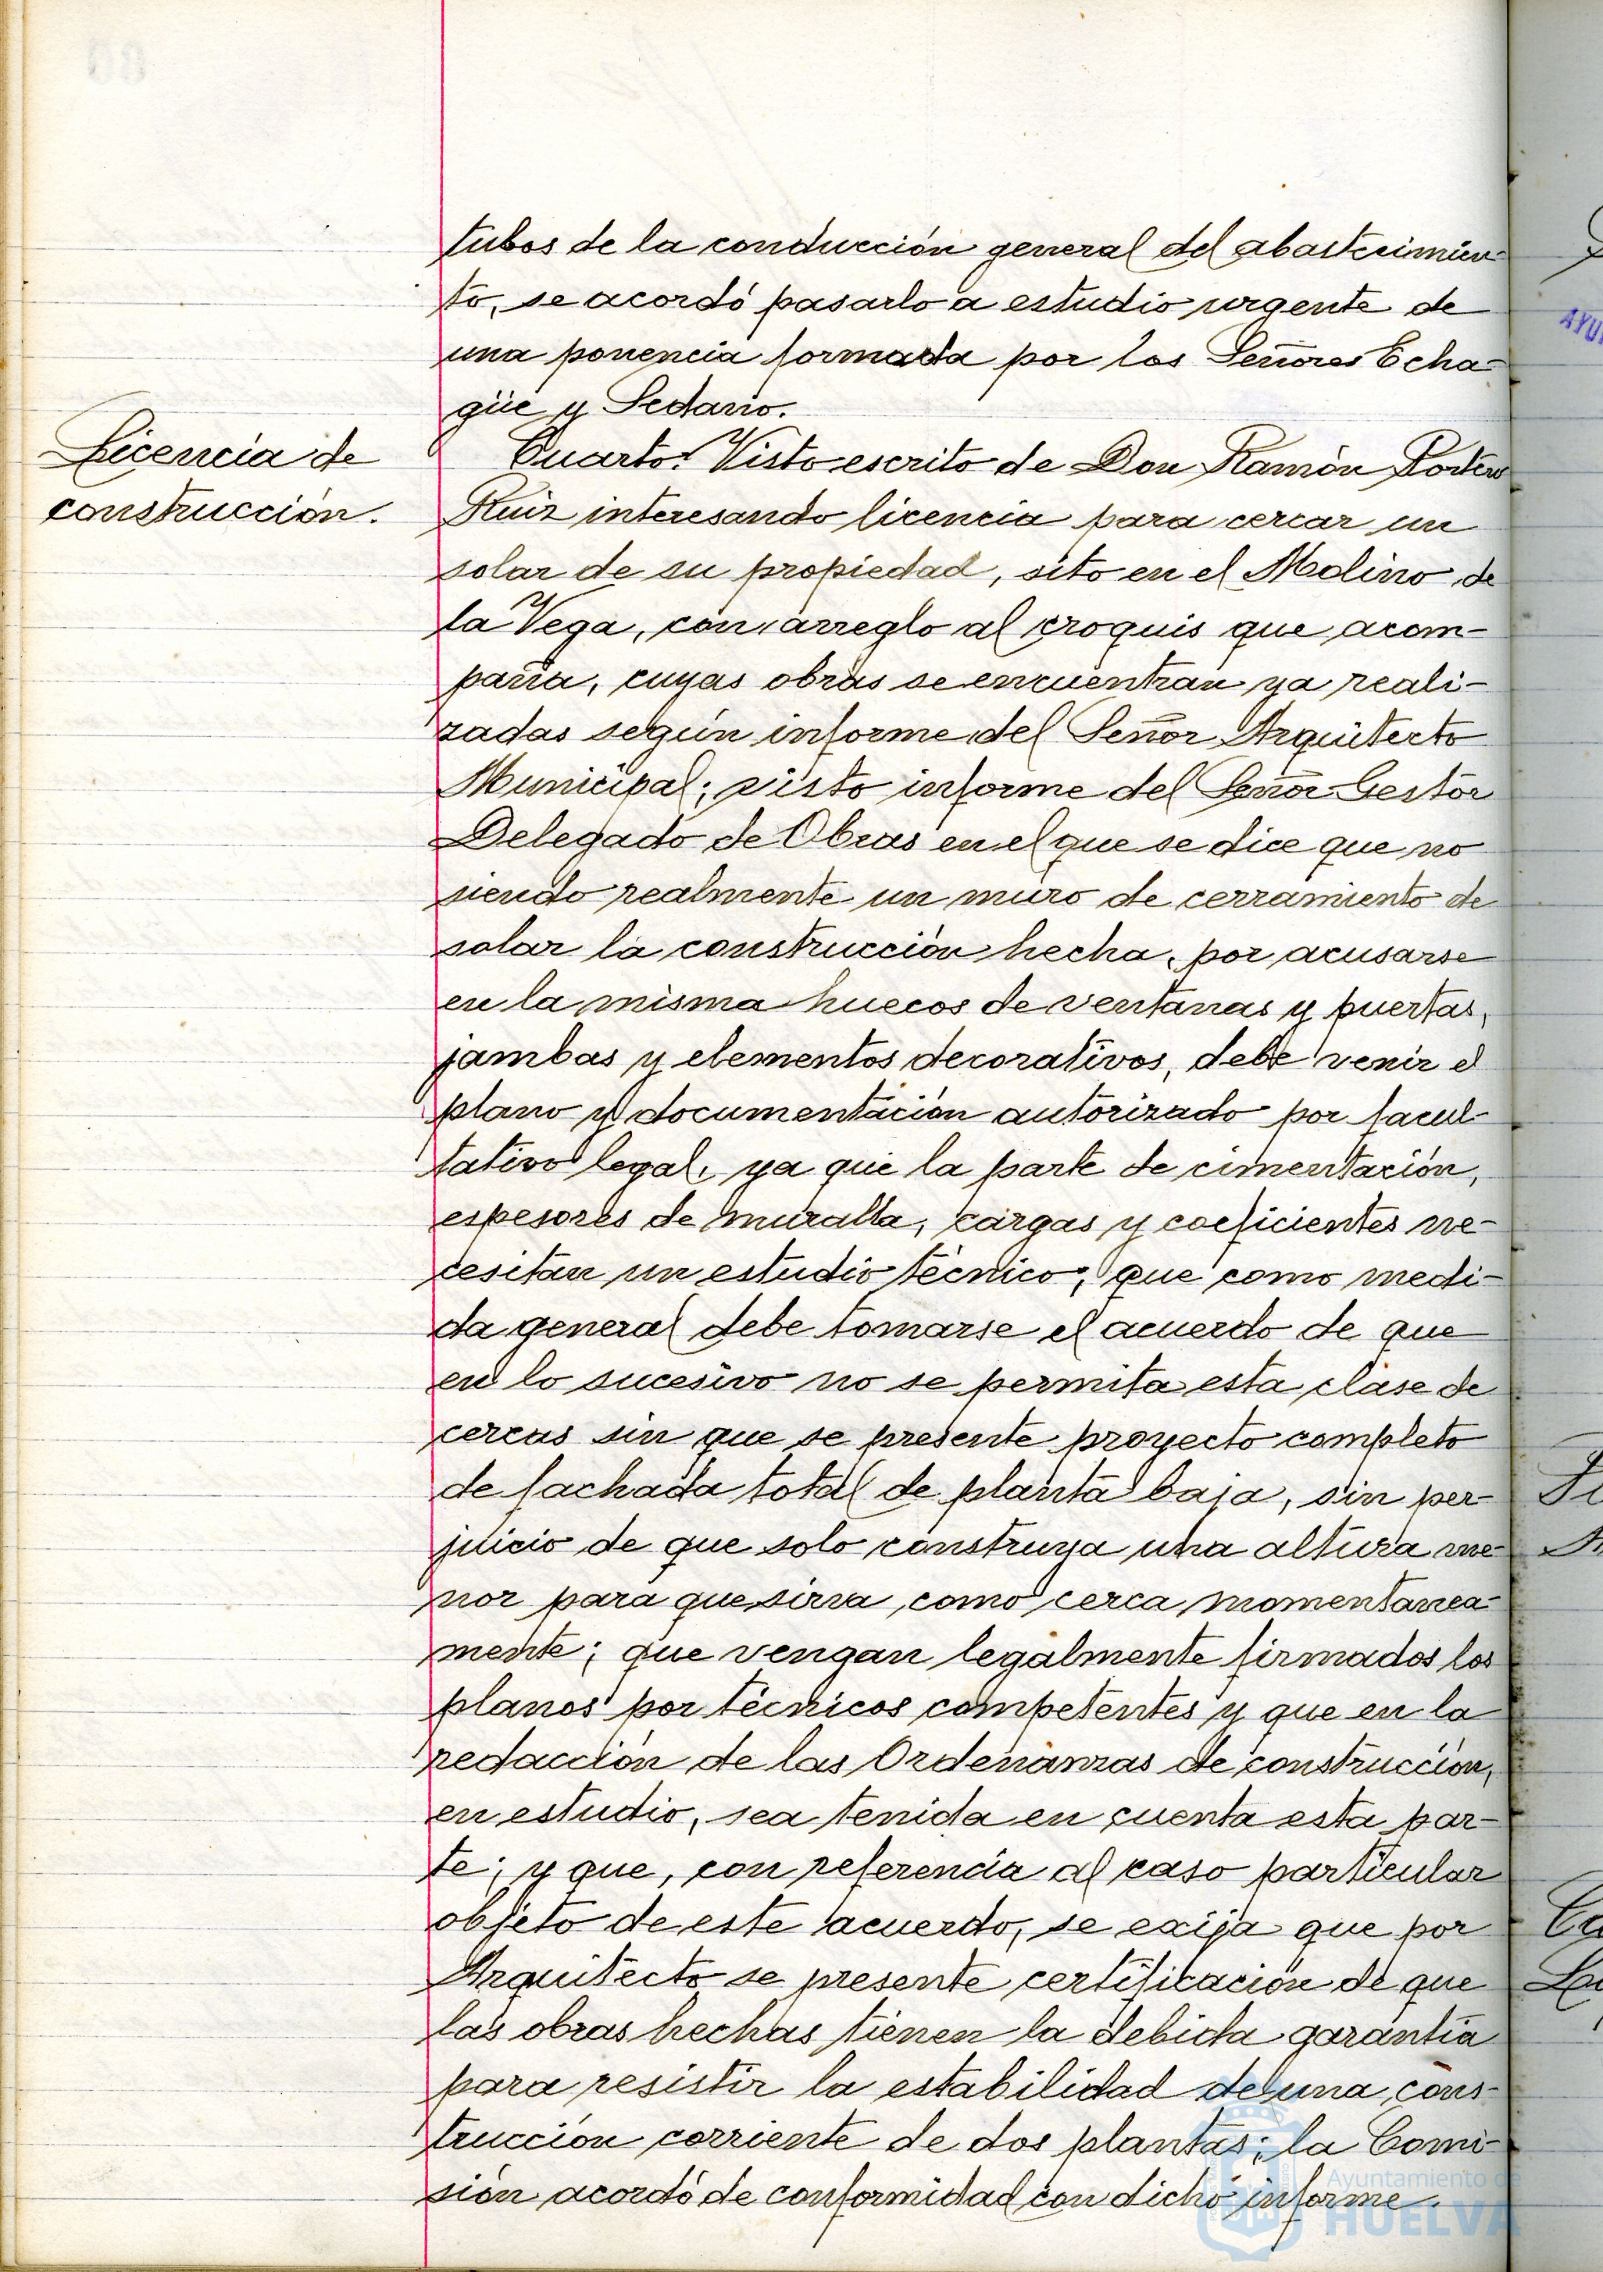 tubos de la conducción general del abastecimien-
to, se acordó pasarlo a estudio urgente de
una ponencia formada por los Señores Echa-
güe y Sedano.
Licencia de
construcción.
Cuarto. Visto escrito de Don Ramón Portero
Ruiz interesando licencia para cercar un
solar de su propiedad, sito en el Molino de
la Vega, con arreglo al croquis que acom-
paña, cuyas obras se encuentran ya reali-
zadas según informe del Señor Arquitecto
Municipal; visto informe del Señor Gestor
Delegado de Obras en el que se dice que no
siendo realmente un muro de cerramiento de
solar la construcción hecha, por acusarse
en la misma huecos de ventanas y puertas,
jambas y elementos decorativos, debe venir el
plano y documentación autorizado por facul-
tativo legal, ya que la parte de cimentación,
espesores de muralla, cargas y coeficientes ne-
cesitan un estudio técnico; que como medi-
da general debe tomarse el acuerdo de que
en lo sucesivo no se permita esta clase de
cercas sin que se presente proyecto completo
de fachada total de planta baja, sin per-
juicio de que solo construya una altura me-
nor para que sirva como cerca momentanea-
mente; que vengan legalmente firmados los
planos por técnicos competentes y que en la
redacción de las Ordenanzas de construcción,
en estudio, sea tenida en cuenta esta par-
te; y que, con referencia al caso particular
objeto de este acuerdo, se exija que por
Arquitecto se presente certificación de que
las obras hechas tienen la debida garantía
para resistir la estabilidad de una cons-
trucción corriente de dos plantas; la Comi-
sión acordó de conformidad con dicho informe.
Ayuntamiento de
HUELVA